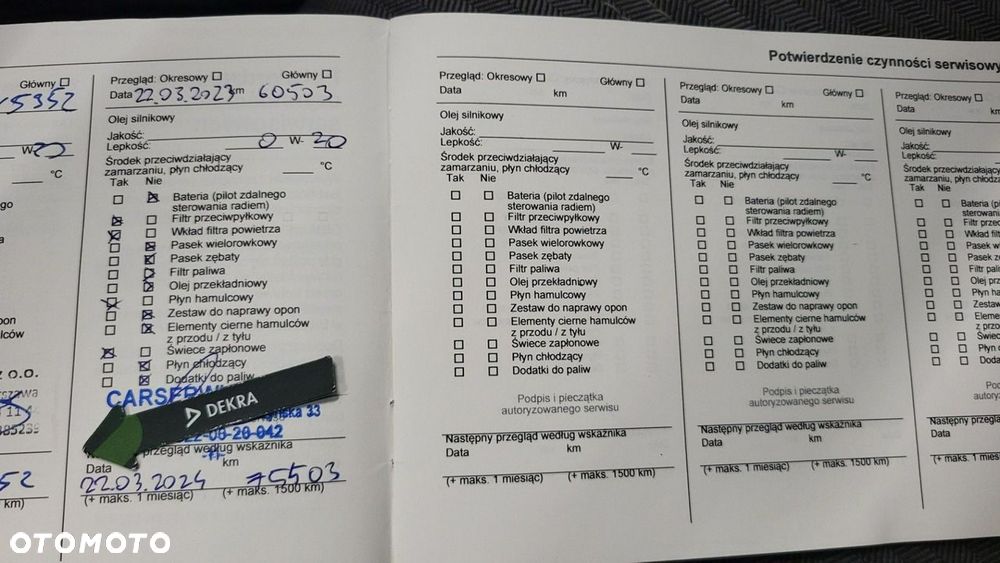 Potwierdzenie czynności serwisowy
Główny
45352
W-20
°C
Z O.O.
52
km)
Przegląd: Okresowy Główny
Data 22.03.2023 km 60503
Olej silnikowy
Jakość:
Lepkość: 0 W- 20
Środek przeciwdziałający
zamarzaniu, płyn chłodzący °C
Tak Nie
Bateria (pilot zdalnego
sterowania radiem)
Filtr przeciwpyłkowy
Wkład filtra powietrza
Pasek wielorowkowy
Pasek zębaty
Filtr paliwa
Olej przekładniowy
Płyn hamulcowy
Zestaw do naprawy opon
Elementy cierne hamulców
z przodu / z tyłu
Świece zapłonowe
Płyn chłodzący
Dodatki do paliw
CARSERW
DEKRA
33
przegląd według wskaźnika
Data km
22.03.2024 75503
(+ maks. 1 miesiąc) (+ maks. 1500 km)
Przegląd: Okresowy Główny
Data km
Olej silnikowy
Jakość:
Lepkość: W-
Środek przeciwdziałający
zamarzaniu, płyn chłodzący °C
Tak Nie
Bateria (pilot zdalnego
sterowania radiem)
Filtr przeciwpyłkowy
Wkład filtra powietrza
Pasek wielorowkowy
Pasek zębaty
Filtr paliwa
Olej przekładniowy
Płyn hamulcowy
Zestaw do naprawy opon
Elementy cierne hamulców
z przodu / z tyłu
Świece zapłonowe
Płyn chłodzący
Dodatki do paliw
Podpis i pieczątka
autoryzowanego serwisu
Następny przegląd według wskaźnika
Data km
(+ maks. 1 miesiąc) (+ maks. 1500 km)
Przegląd: Okresowy Główny
Data km
Olej silnikowy
Jakość:
Lepkość: W-
Środek przeciwdziałający
zamarzaniu, płyn chłodzący °C
Tak Nie
Bateria (pilot zdalnego
sterowania radiem)
Filtr przeciwpyłkowy
Wkład filtra powietrza
Pasek wielorowkowy
Pasek zębaty
Filtr paliwa
Olej przekładniowy
Płyn hamulcowy
Zestaw do naprawy opon
Elementy cierne hamulców
z przodu / z tyłu
Świece zapłonowe
Płyn chłodzący
Dodatki do paliw
Podpis i pieczątka
autoryzowanego serwisu
Następny przegląd według wskaźnika
Data km
(+ maks. 1 miesiąc) (+ maks. 1500 km)
Przegląd: Okresowy
Data
Olej silnikowy
Jakość:
Lepkość:
Środek przeciwdziałając
zamarzaniu, płyn chłodz
Tak Nie
Bateria (pi
sterowania
Filtr przec
Wkład filtr
Pasek wie
Pasek zęb
Filtr paliwa
Olej prz
Płyn ha
Zestaw
Element
z przodu
Świece
Płyn c
Dodatk
Podp
autoryzo
Następny przegląd
Data
(+ maks. 1 miesi
OTOMOTO